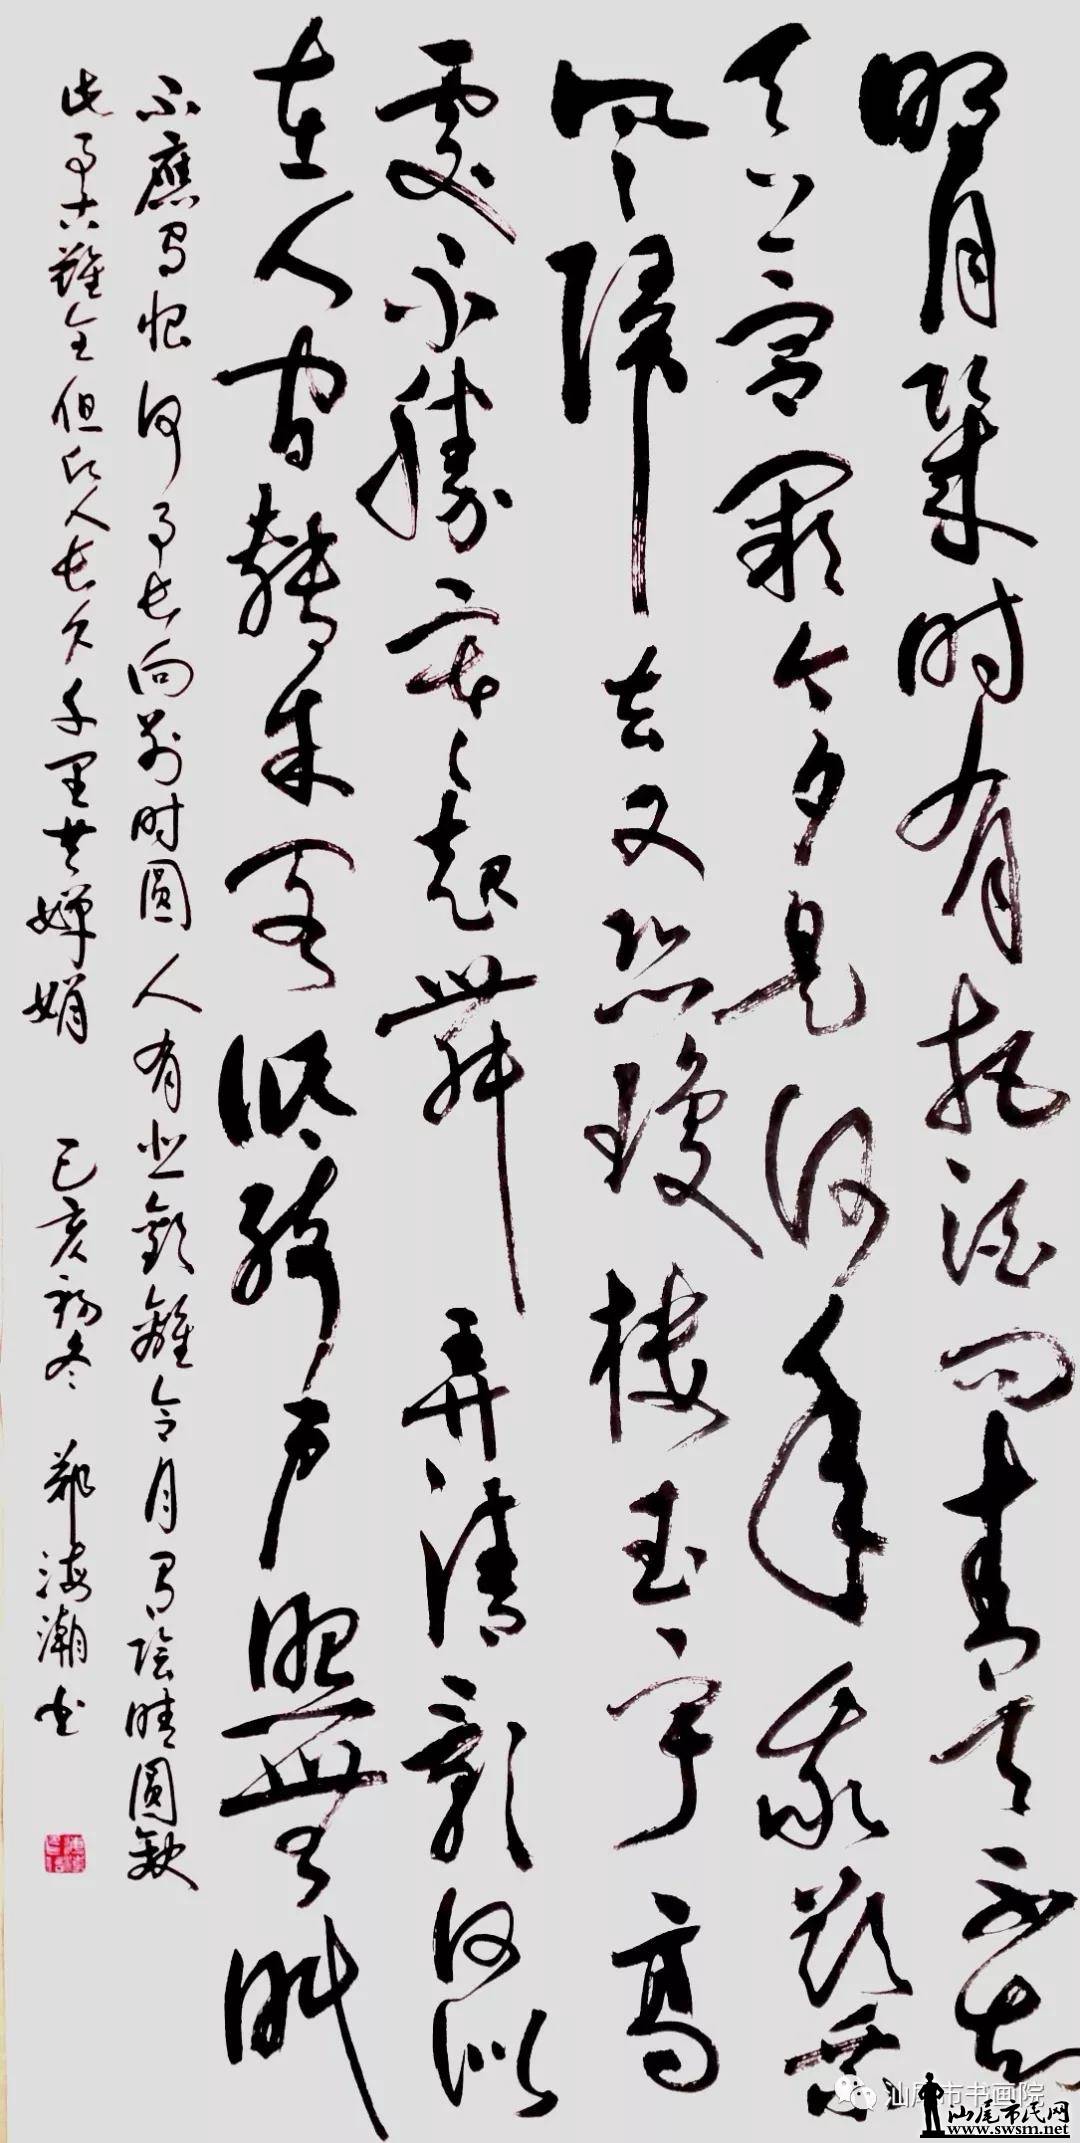 明月幾时有把酒问青天不知
天上宫阙今夕是何年我欲乘
风歸去又恐瓊楼玉宇高
處不勝寒起舞弄清影何似
在人间轉朱阁低绮户照無眠
不應有恨何事长向别时圓人有悲歡離合月有陰晴圓缺
此事古難全但願人长久千里共嬋娟 己亥初冬 郑海潮书
汕尾市书画院
汕尾市民网
www.swsm.net